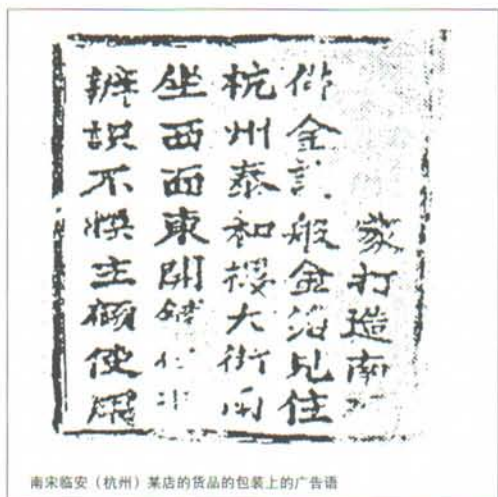 家打造南
金諸般金泊見住
杭州泰和樓大街南
坐西面東開鋪
辨識不悞主顧使用
南宋临安（杭州）某店的货品的包装上的广告语